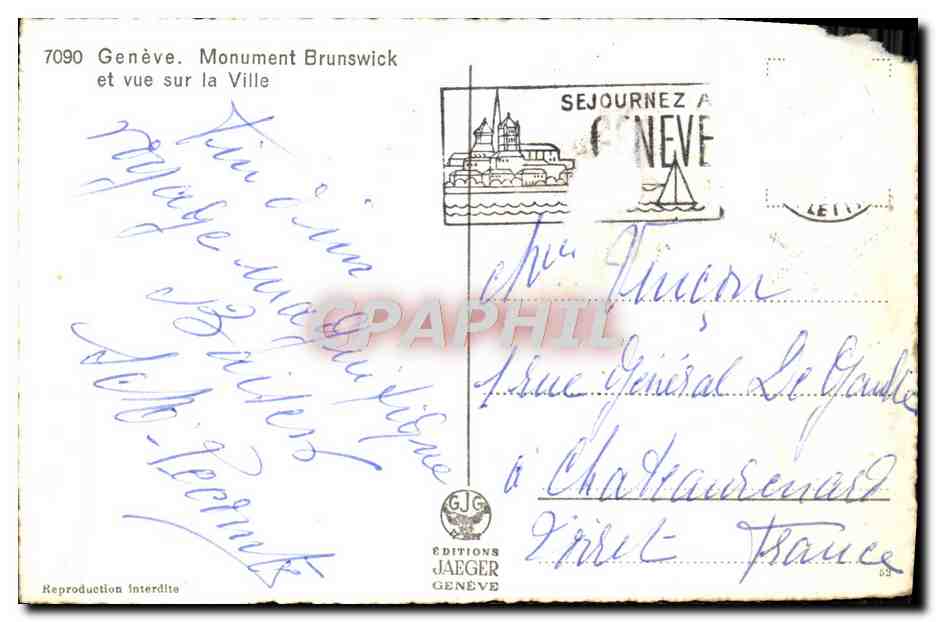 7090 Genève. Monument Brunswick
et vue sur la Ville
SEJOURNEZ A
GENEVE
Fin d'un
voyage magnifique
Baisers
Vinçon
1 rue Général De Gaulle
à Chateaurenard
Loiret France
CPAPHIL
GJG
EDITIONS
JAEGER
GENÈVE
52
Reproduction interdite